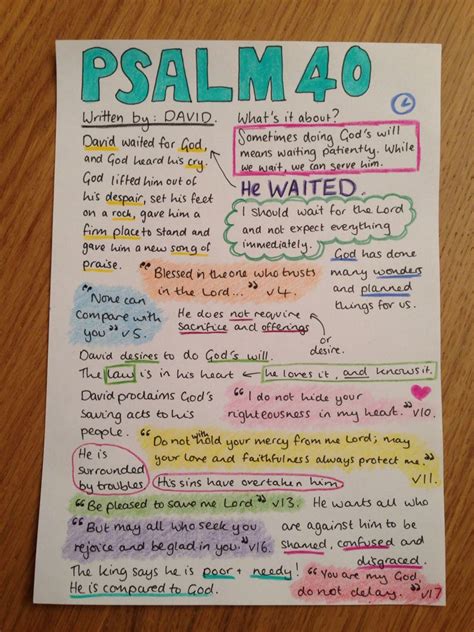 PSALM 40
Written by: DAVID.
What's it about?
Sometimes doing God's will
means waiting patiently. While
we wait, we can serve him.
David waited for God,
and God heard his cry.
God lifted him out of
his despair, set his feet
on a rock, gave him a
firm place to stand and
gave him a new song of
praise.
He WAITED.
I should wait for the Lord
and not expect everything
immediately.
God has done
many wonders
and planned
things for us.
"Blessed is the one who trusts
in the Lord..." v4.
"None can
compare with
you" v5.
He does not require
Sacrifice and offerings
or
desire.
David desires to do God's will.
The law is in his heart ← he loves it, and knows it.
David proclaims God's
saving acts to his
people.
"I do not hide your
righteousness in my heart." v10.
"Do not withhold your mercy from me Lord; may
your love and faithfulness always protect me."
v11.
He is
surrounded
by troubles
His sins have overtaken him
"Be pleased to save me Lord" v13.
"But may all who seek you
rejoice and be glad in you." v16.
He wants all who
are against him to be
shamed, confused and
disgraced.
The king says he is poor + needy!
He is compared to God.
"You are my God,
do not delay." v17